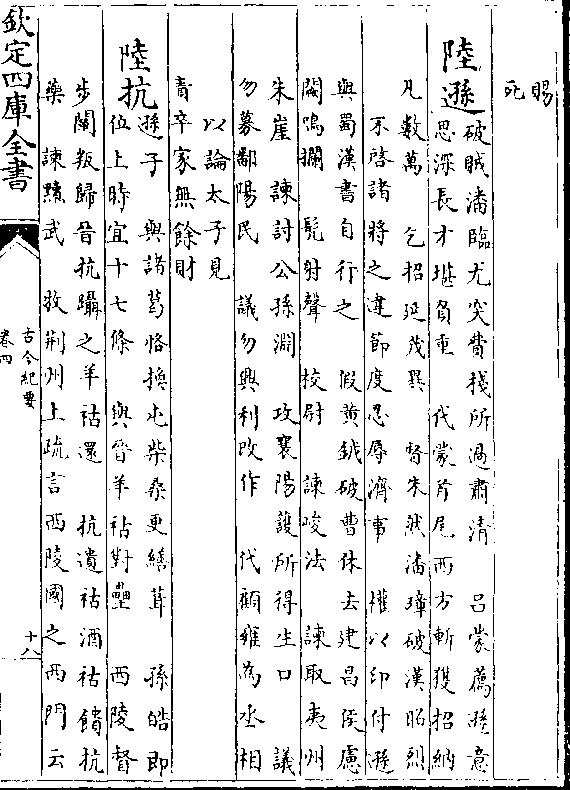 賜
死
陸遜
破賊潘臨尤突費棧所過肅清　呂蒙薦遜意
思深長才堪負重　代蒙斧尾西方斬獲招納
凡數萬　乞招延茂異　督朱然潘璋破漢昭烈
不啓諸將之違節度忍辱濟事　權以印付遜
與蜀漢書自行之　假黃鉞破曹休去建昌侯慮
闘鳴欄　髠射聲校尉　諫峻法　諫取夷州
朱崖　諫討公孫淵　攻襄陽護所得生口　議
勿募鄱陽民　議勿興利改作　代顧雍為丞相
以論太子見
責卒家無餘財
陸抗
遜子　與諸葛恪換屯柴桑更繕葺　孫皓即
位上時宜十七條　與晉羊祜對壘　西陵督
步闡叛歸晉抗躡之羊祜還　抗遺祜酒祜饋抗
藥　諫黷武　牧荆州上疏言西陵國之西門云
欽定四庫全書
古今紀要
卷四
十八